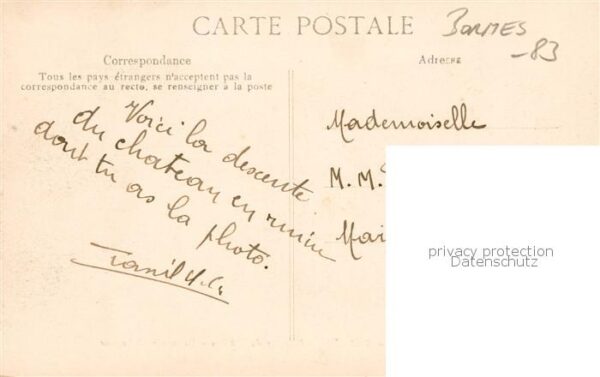 CARTE POSTALE
BORMES
-83
Correspondance
Tous les pays étrangers n'acceptent pas la
correspondance au recto, se renseigner à la poste
Voici la descente
du chateau en ruine
dont tu as la photo.
Adresse
Mademoiselle
M. M.
Mai
privacy protection
Datenschutz